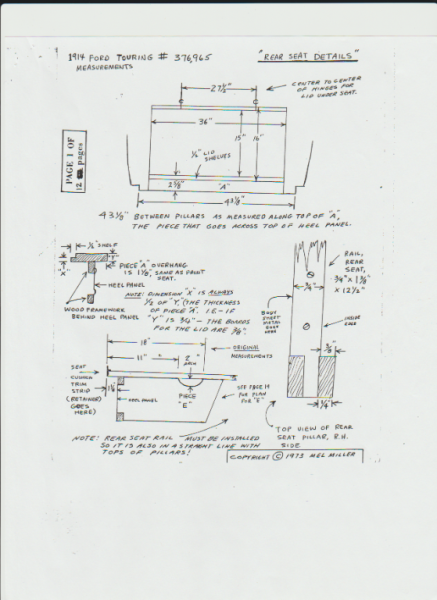 1914 FORD TOURING # 376,965
MEASUREMENTS
"REAR SEAT DETAILS"
27½"
CENTER TO CENTER
OF HINGES FOR
LID UNDER SEAT.
36"
15"
16"
½" LID
SHELVES
2⅝"
"A"
43⅛"
PAGE 1 OF
12 pages
43⅛" BETWEEN PILLARS AS MEASURED ALONG TOP OF "A",
THE PIECE THAT GOES ACROSS TOP OF HEEL PANEL.
½" SHELF
"X"
"Y"
PIECE "A" OVERHANG
IS 1⅛", SAME AS FRONT
SEAT.
HEEL PANEL
NOTE: DIMENSION "X" IS ALWAYS
½ OF "Y", (THE THICKNESS
OF PIECE "A". I.E.- IF
"Y" IS ¾" - THE BOARDS
FOR THE LID ARE ⅜".
WOOD FRAMEWORK
BEHIND HEEL PANEL
RAIL,
REAR
SEAT,
¾" X 1⅜"
X 12½"
BODY
SHEET
METAL
INNER
EDGE
18"
11"
ORIGINAL
MEASUREMENTS
SEAT
CUSHION
TRIM
STRIP
(RETAINER)
GOES
HERE)
HEEL PANEL
PIECE
"E"
SEE PAGE
FOR PLAN
FOR "E"
¼"
TOP VIEW OF REAR
SEAT PILLAR, R.H.
SIDE
NOTE! REAR SEAT RAIL MUST BE INSTALLED
SO IT IS ALSO IN A STRAIGHT LINE WITH
TOPS OF PILLARS!
COPYRIGHT © 1973 MEL MILLER